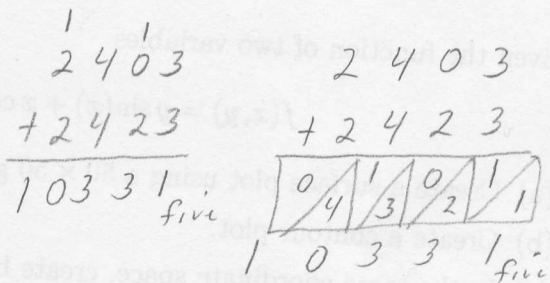 1 1
2 4 0 3
+ 2 4 2 3
1 0 3 3 1 five
2 4 0 3
+ 2 4 2 3
0/4 1/3 0/2 1/1
1 0 3 3 1 five